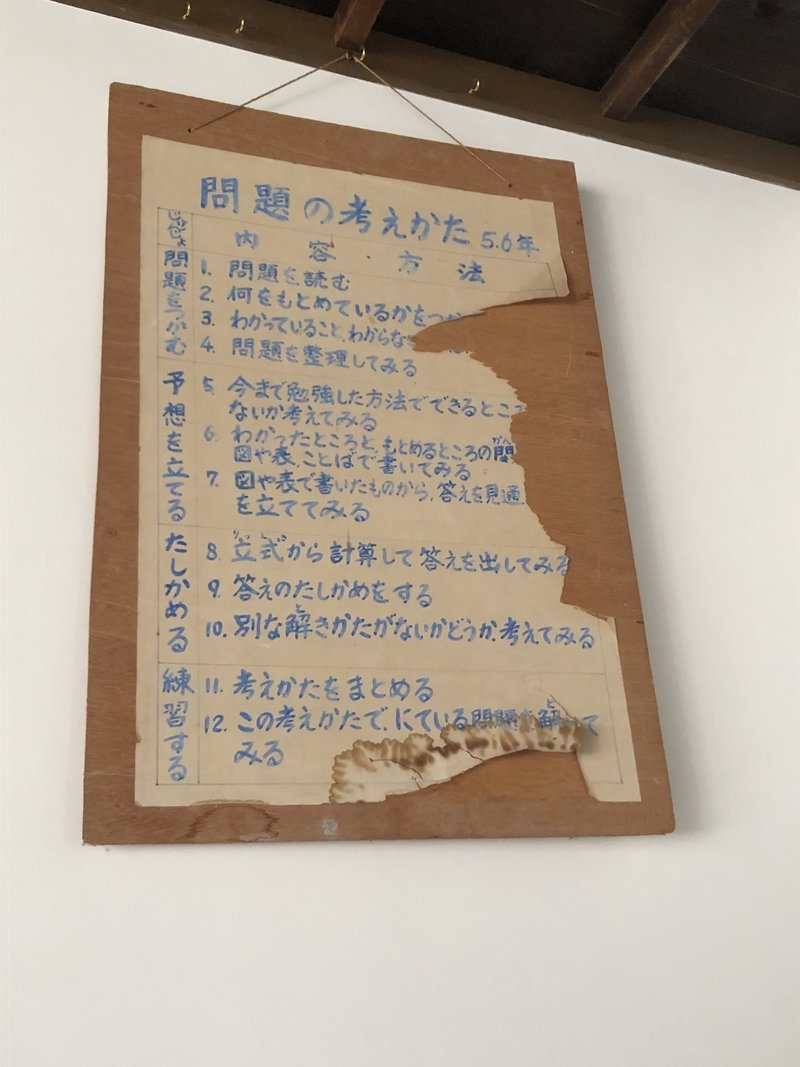 問題の考えかた 5.6年
じゅんじょ
内容・方法
問題をつかむ
1. 問題を読む
2. 何をもとめているかをつ
3. わかっていること、わからな
4. 問題を整理してみる
予想を立てる
5. 今まで勉強した方法でできるところ
ないか考えてみる
6. わかったところと、もとめるところの関
図や表、ことばで書いてみる
7. 図や表で書いたものから、答えを見通
を立ててみる
たしかめる
8. 立式から計算して答えを出してみる
9. 答えのたしかめをする
10. 別な解きかたがないかどうか、考えてみる
練習する
11. 考えかたをまとめる
12. この考えかたで、にている問題を解いて
みる